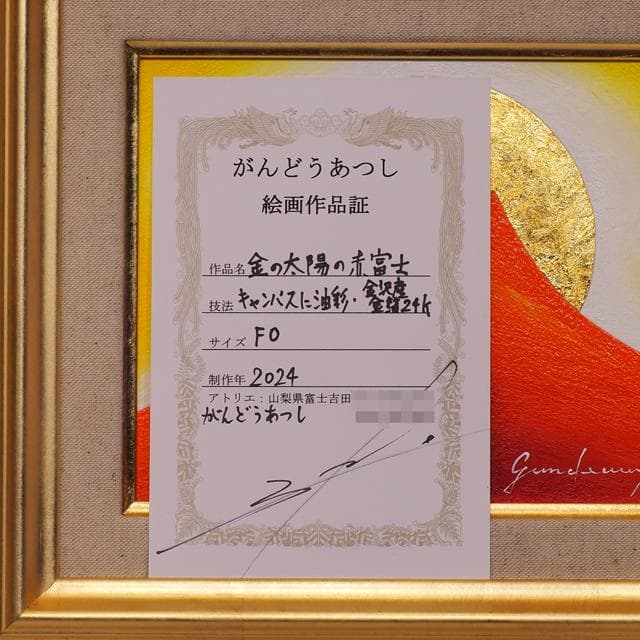 がんどうあつし
絵画作品証
作品名 金の太陽の赤富士
技法 キャンバスに油彩・金沢産金箔24K
サイズ F0
制作年 2024
アトリエ：山梨県富士吉田
がんどうあつし